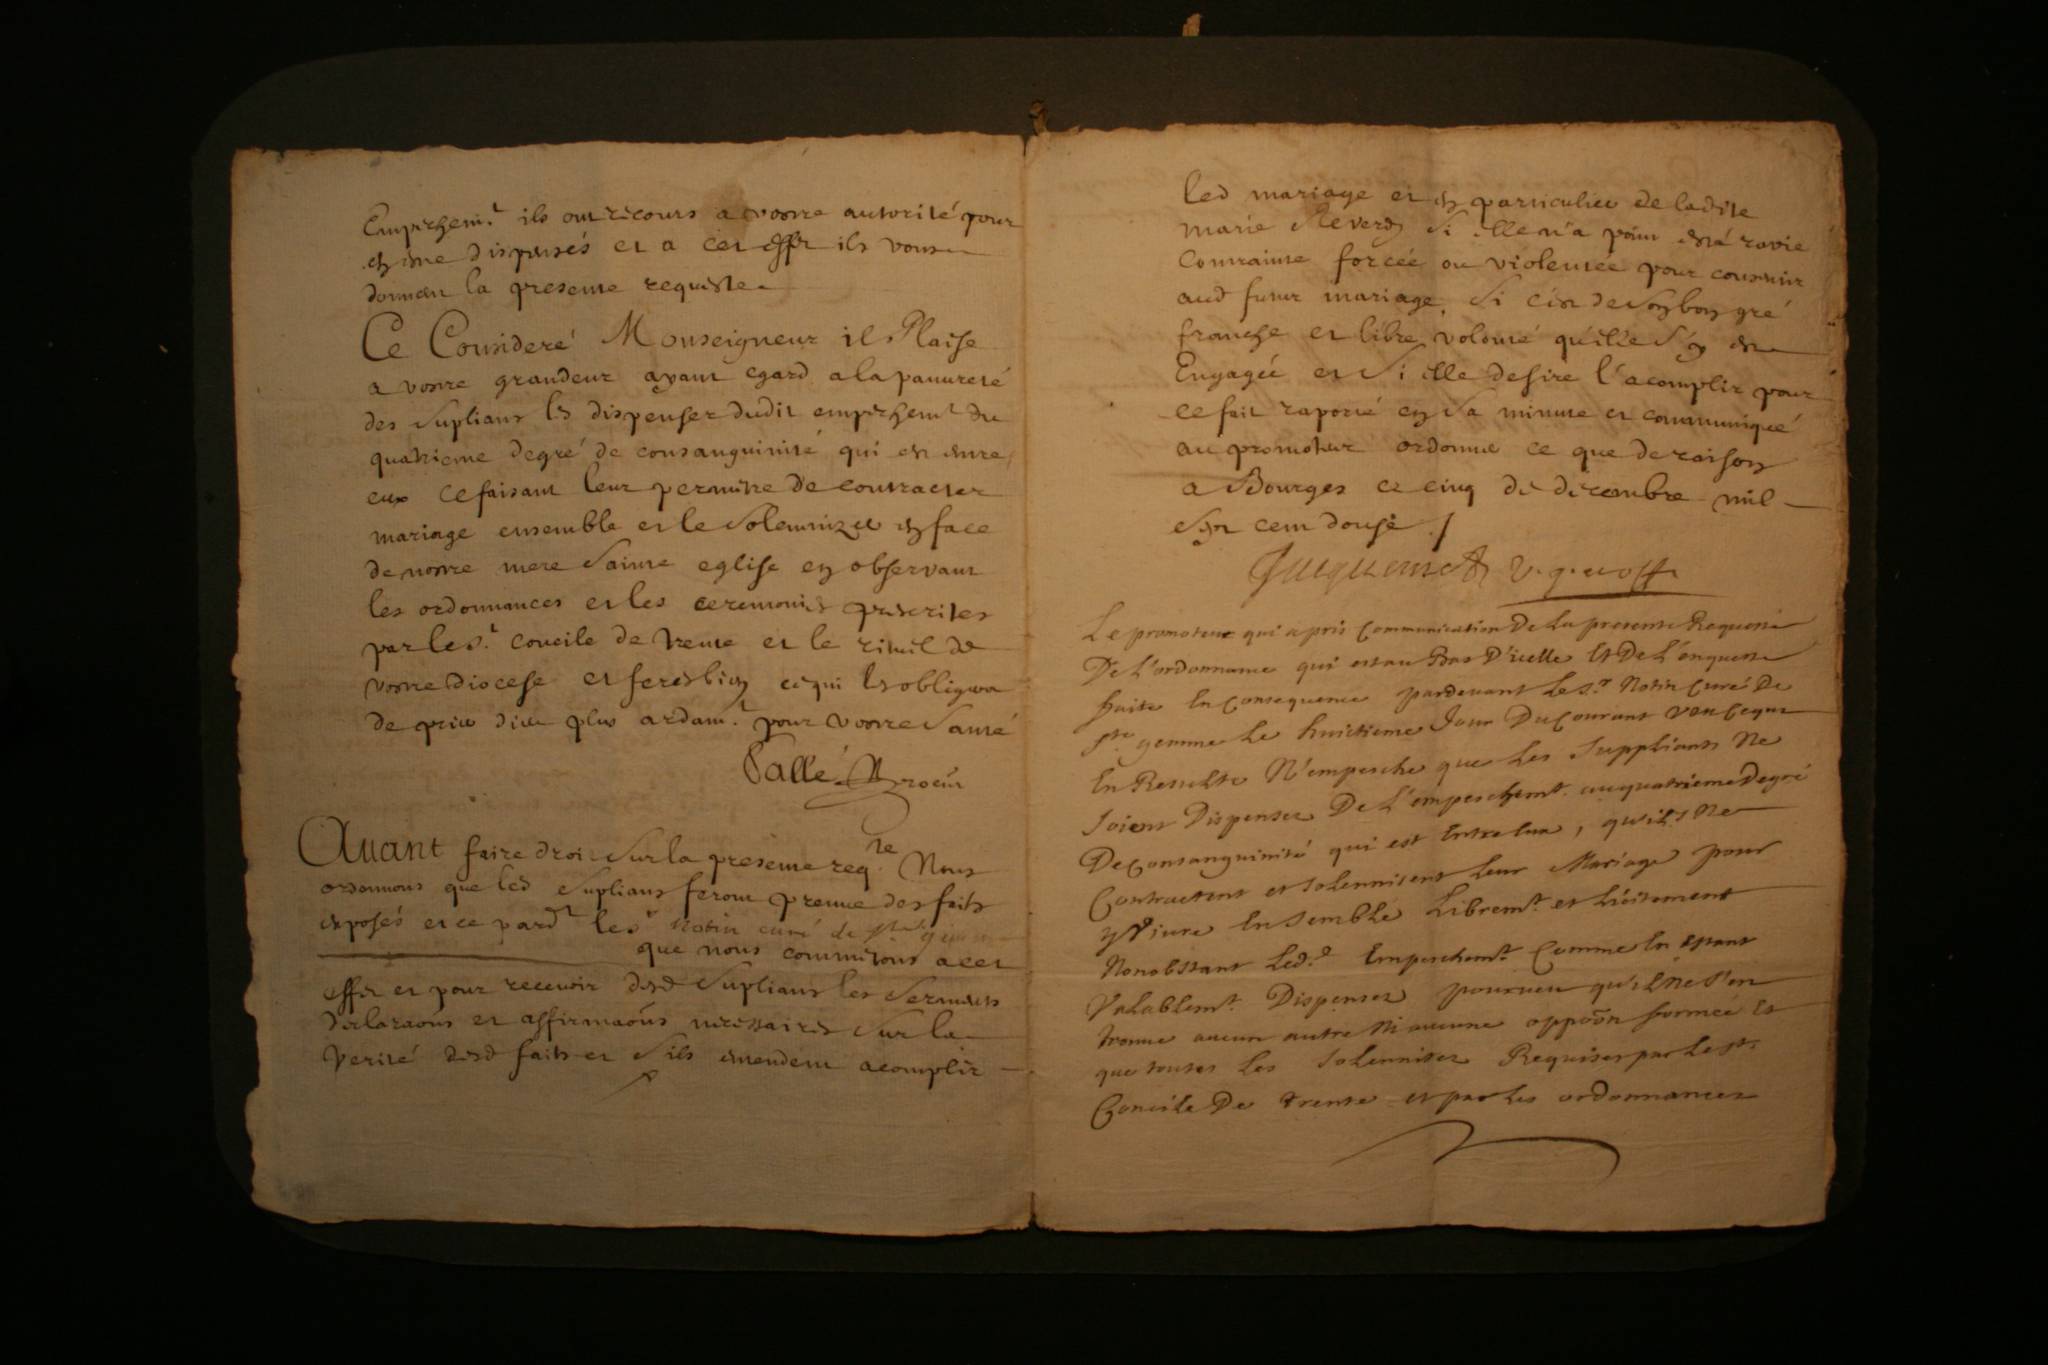 Empeschem.t ils ont recours a vostre autorité pour
en estre dispensés et a cet effet ils vous
donnent la presente requeste
Ce Consideré Monseigneur il Plaise
a vostre grandeur ayant egard a la pauureté
des suplians les dispenser dudit empeschemt du
quatrieme degré de consanguinité qui est entre
eux ce faisant leur permettre de contracter
mariage ensemble et le solemnizer en face
de nostre mere sainte eglise en observant
les ordonnances et les ceremonies prescrites
par le st. concile de trente et le rituel de
vostre diocese et feres bien ce qui les obligera
de prier dieu plus ardam.t pour vostre santé
Vallé
Auant faire droit sur la presente req.te Nous
ordonnons que led suplians feront preuue des faits
exposés et ce pard.t le sr Notin curé de ste gemme
que nous commettons a cet
effet et pour receuoir desd suplians les sermens
declaraons et affirmaons necessaires sur la
verité desd faits et s'ils entendent acomplir
led mariage et en particulier de ladite
marie Reverdy si elle n'a point esté ravie
contrainte forcée ou violentée pour consentir
aud futur mariage, si c'est de son bon gré
franche et libre volonté qu'elle s'y est
Engagée et si elle desire l'acomplir pour
ce fait raporté en sa minute et communiqué
au promoteur ordonner ce que de raison
a Bourges ce cinq de decembre mil
sept cent douse
Jacquemet v. g. et off.
Le promoteur qui a pris Communication De la presente Requeste
De L'ordonnance qui est au Bas D'icelle Et De L'enqueste
faite En Consequence pardeuant Le sr. Notin Curé De
ste gemme Le huictieme Jour Du Courant Veu Ce qui
En Resulte N'empesche que Les Suppliants Ne
soient Dispensez De L'empeschemt. au quatrieme Degré
De Consanguinité qui est Entre Eux, qu'ils Ne
Contractent et solennisent Leur Mariage pour
y Viure Ensemble Librem.t et Licitement
Nonobstant Led.t Empeschem.t Comme En Estant
Valablem.t Dispensez pourueu qu'il Ne s'en
trouue aucun autre Ni aucune oppoõn formée Et
que toutes Les solennitez Requises par Le st.
Concile De trente et par Les ordonnances